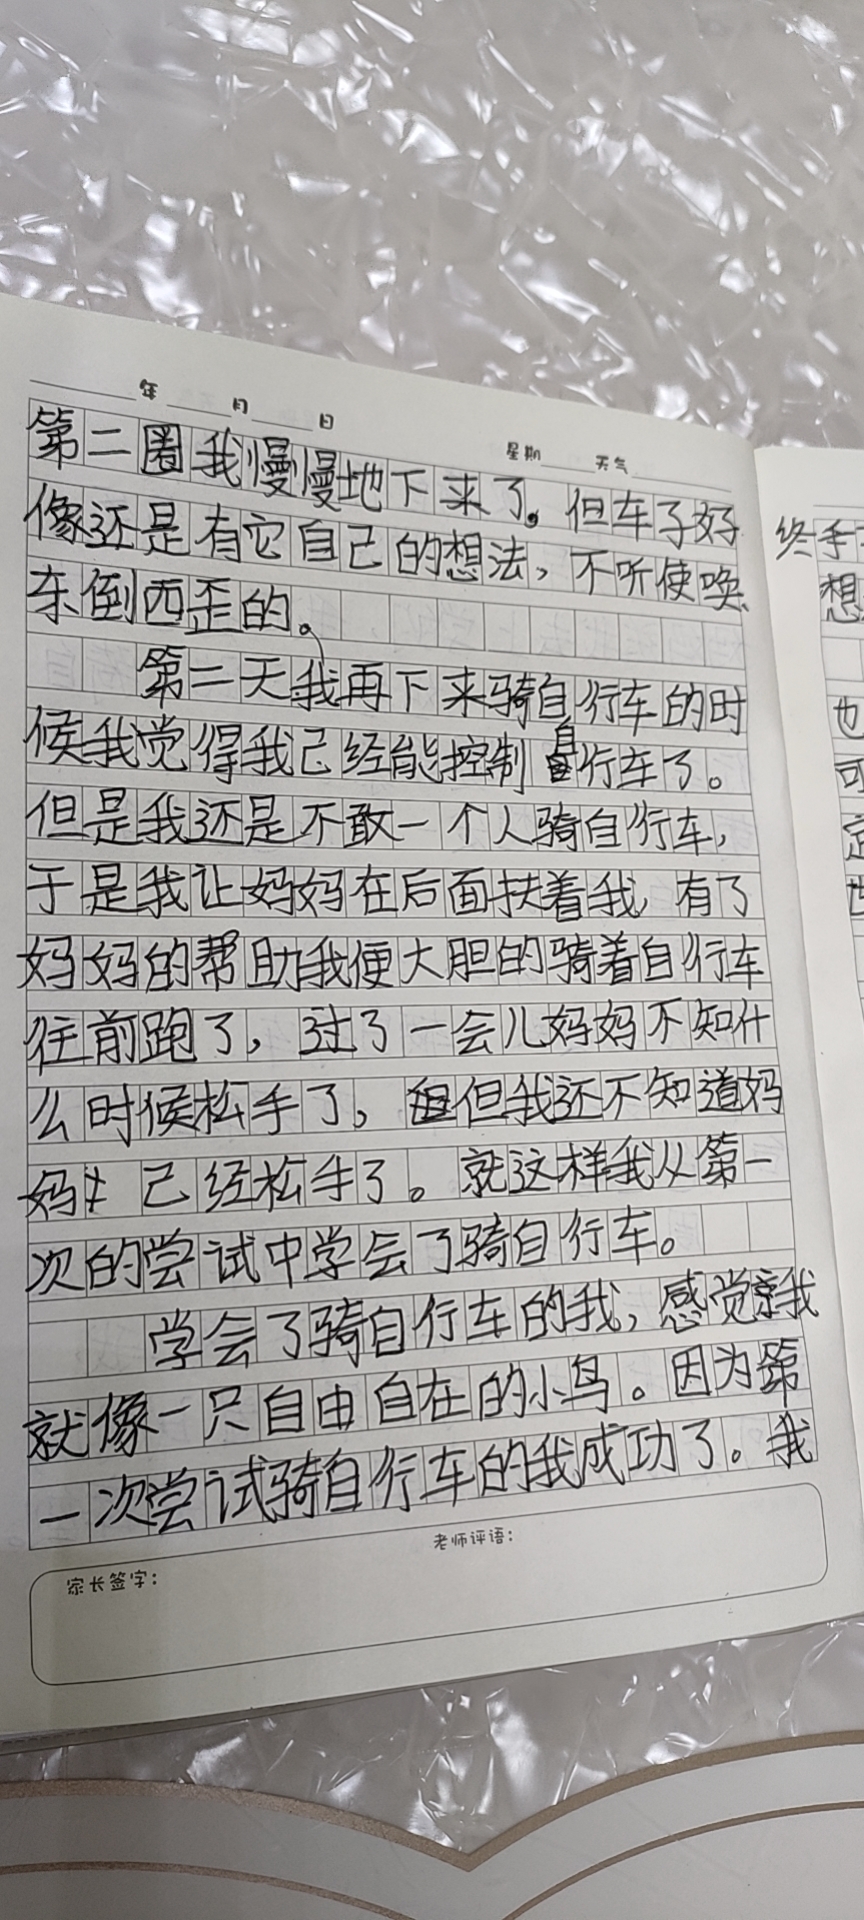 年 月 日
星期 天气
第二圈我慢慢地下来了。但车子好
像还是有它自己的想法，不听使唤、
东倒西歪的。
第二天我再下来骑自行车的时
候我觉得我已经能控制自行车了。
但是我还是不敢一个人骑自行车，
于是我让妈妈在后面扶着我，有了
妈妈的帮助我便大胆的骑着自行车
往前跑了，过了一会儿妈妈不知什
么时候松手了，但我还不知道妈
妈 已经松手了。就这样我从第一
次的尝试中学会了骑自行车。
学会了骑自行车的我，感觉我
就像一只自由自在的小鸟。因为第
一次尝试骑自行车的我成功了。我
老师评语：
家长签字：
终于
想
也
可
定